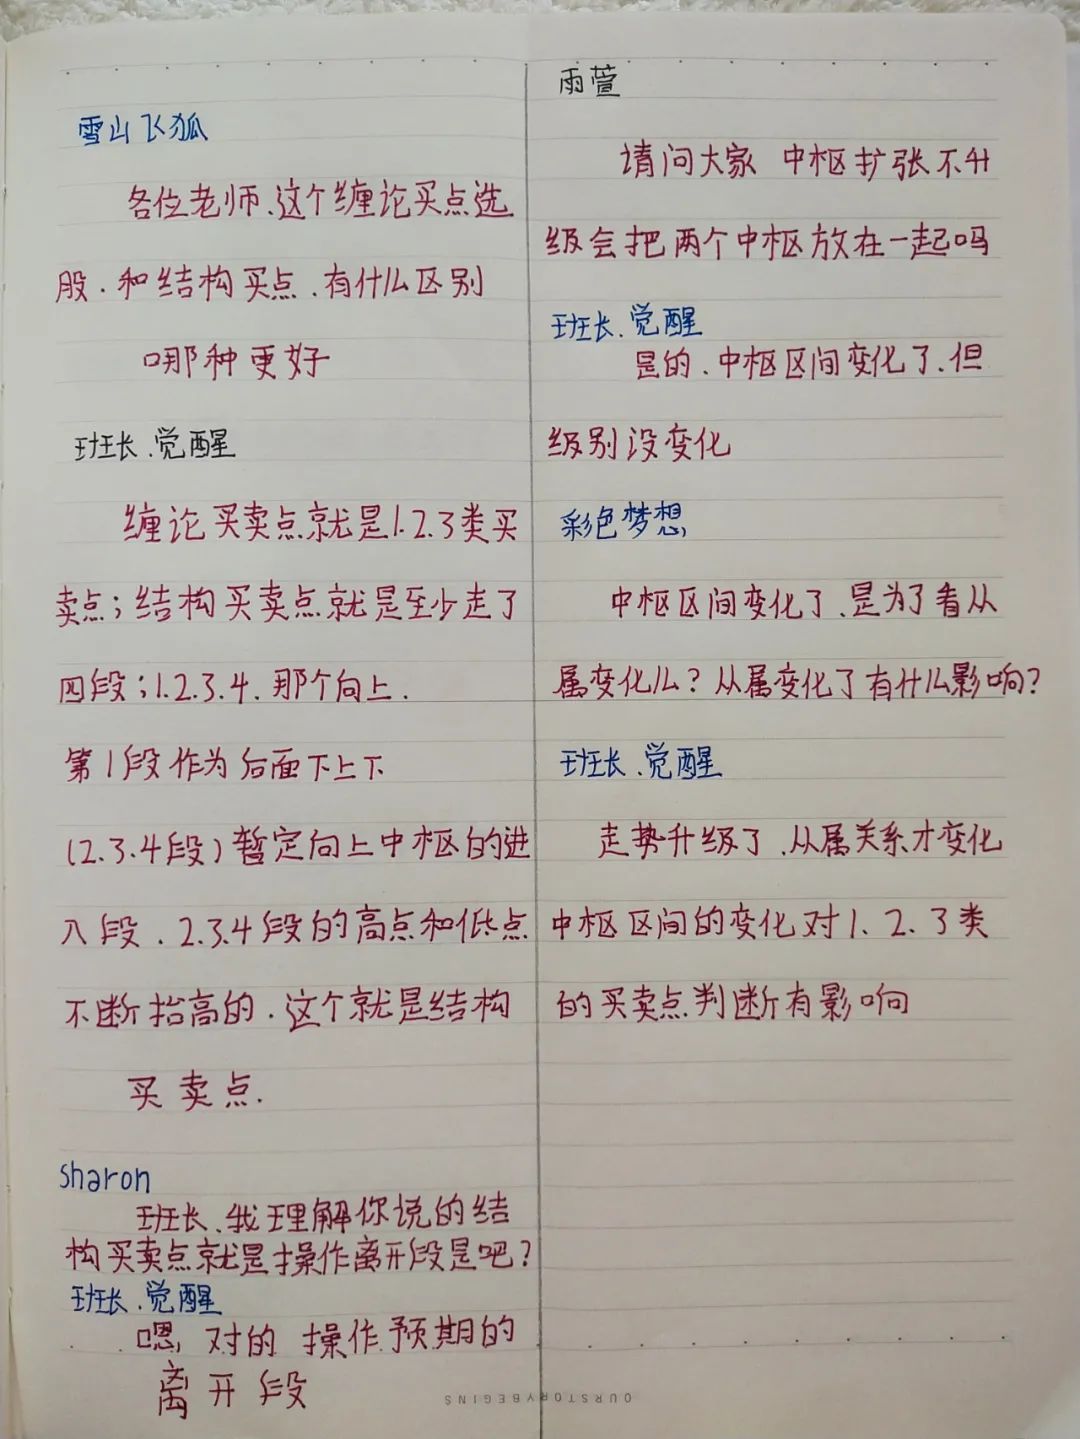 雪山飞狐
各位老师、这个缠论买点选
股、和结构买点、有什么区别
哪种更好
班长、觉醒
缠论买卖点就是1.2.3类买
卖点；结构买卖点就是至少走了
四段；1.2.3.4、那个向上.
第1段作为后面下上下
(2.3.4段)暂定向上中枢的进
入段、2.3.4段的高点和低点
不断抬高的、这个就是结构
买卖点.
sharon
班长、我理解你说的结
构买卖点就是操作离开段是吧？
班长、觉醒
嗯,对的 操作预期的
离开段
雨萱
请问大家 中枢扩张不升
级会把两个中枢放在一起吗
班长、觉醒
是的、中枢区间变化了、但
级别没变化
彩色梦想
中枢区间变化了、是为了看从
属变化么？从属变化了有什么影响？
班长、觉醒
走势升级了、从属关系才变化
中枢区间的变化对1、2、3类
的买卖点判断有影响
OURSTORYBEGINS